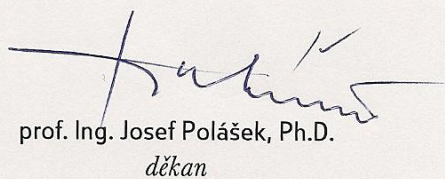 prof. Ing. Josef Polášek, Ph.D.
děkan